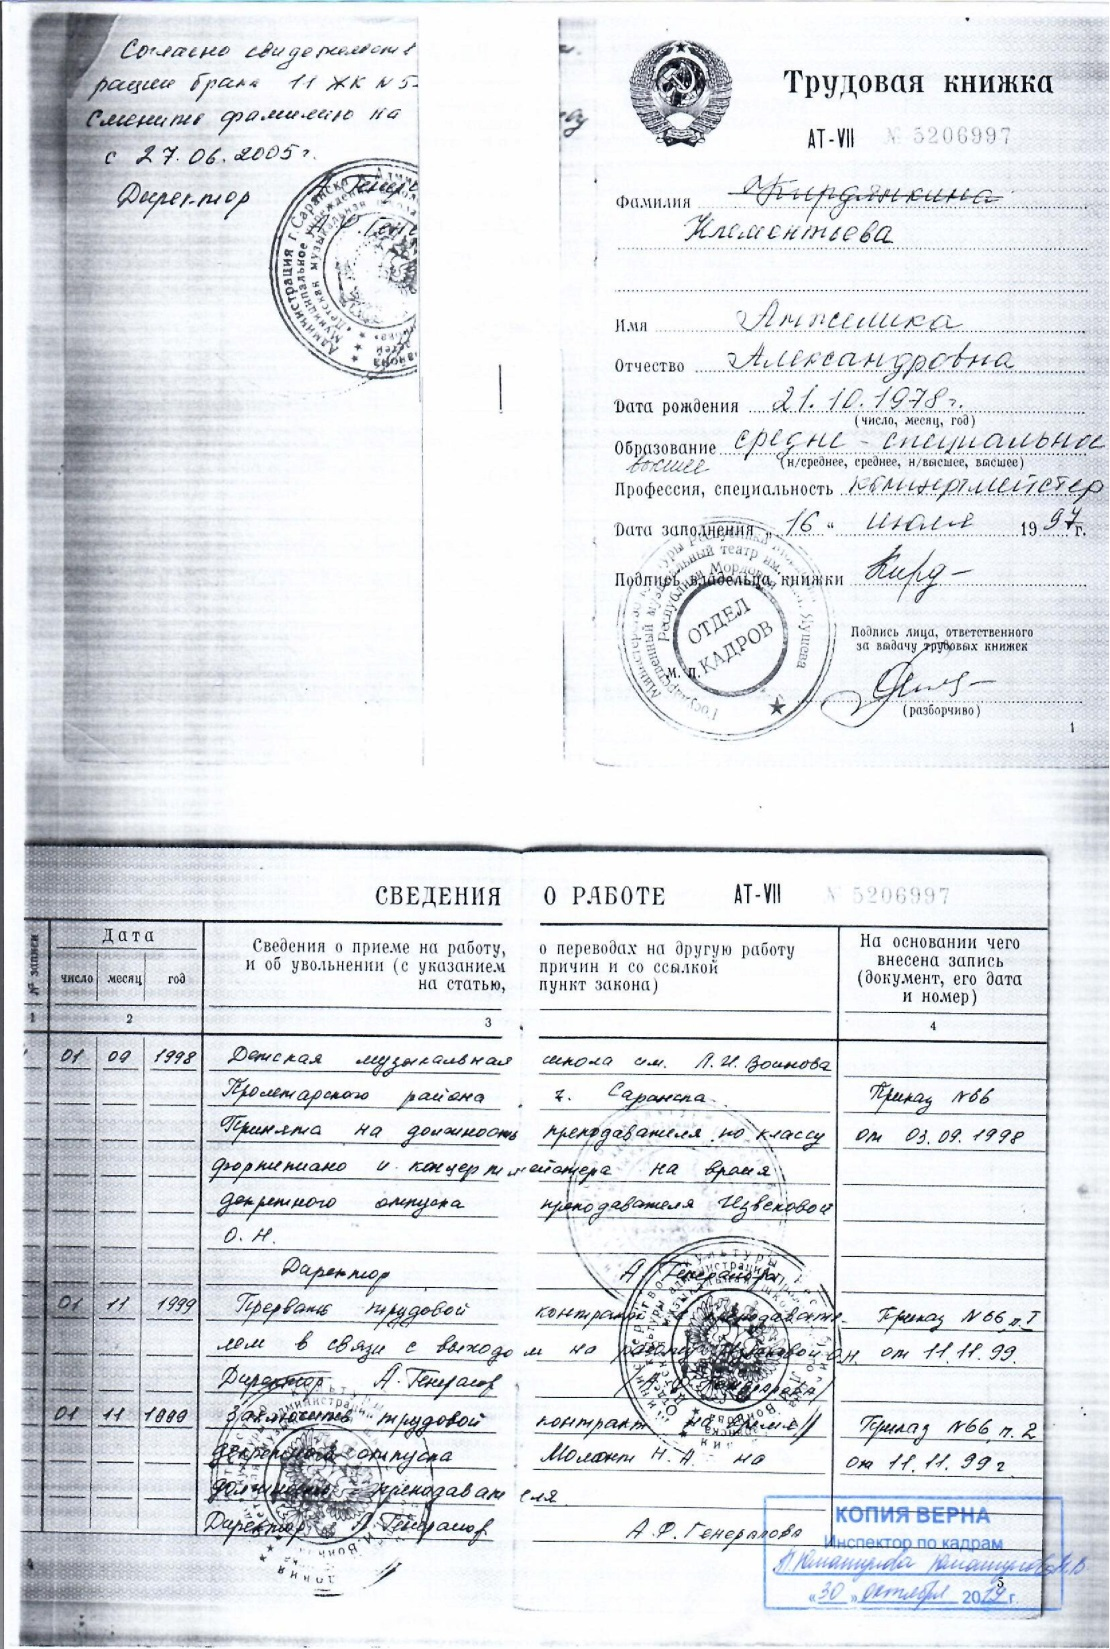 Согласно свидетельств
рации брака 11 ЖК N 5
Сменить фамилию на
с 27.06.2005 г.
Директор А. Генер
Трудовая книжка
АТ-VII № 5206997
Фамилия Кирдянкина
Клементьева
Имя Анжелика
Отчество Александровна
Дата рождения 21.10.1978 г.
(число, месяц, год)
Образование средне-специальное
высшее (н/среднее, среднее, н/высшее, высшее)
Профессия, специальность концертмейстер
Дата заполнения „16“ июля 1997 г.
Подпись владельца книжки Кирд-
ОТДЕЛ
КАДРОВ
Подпись лица, ответственного
за выдачу трудовых книжек
М. П.
(разборчиво)
1
СВЕДЕНИЯ О РАБОТЕ АТ-VII № 5206997
№ записи
Дата
число месяц год
Сведения о приеме на работу, о переводах на другую работу
и об увольнении (с указанием причин и со ссылкой
на статью, пункт закона)
На основании чего
внесена запись
(документ, его дата
и номер)
1 2 3 4
01 09 1998 Детская музыкальная школа им. Л. И. Воинова
Пролетарского района г. Саранска Приказ №66
Принята на должность преподавателя по классу от 03.09.1998
фортепиано и концертмейстера на время
декретного отпуска преподавателя Извековой
О. Н.
Директор А. Генералова
01 11 1999 Прервать трудовой контракт с преподавате- Приказ №66 п. 1
лем в связи с выходом на работу Извековой О.Н. от 11.11.99.
Директор А. Генералов
01 11 1999 Заключить трудовой контракт на время Приказ №66 п. 2
декретного отпуска Н. А. на от 11.11.99 г
должность преподавателя
Директор А. Генералов А. Ф. Генералова
КОПИЯ ВЕРНА
Инспектор по кадрам
«30» октября 2019 г.
5